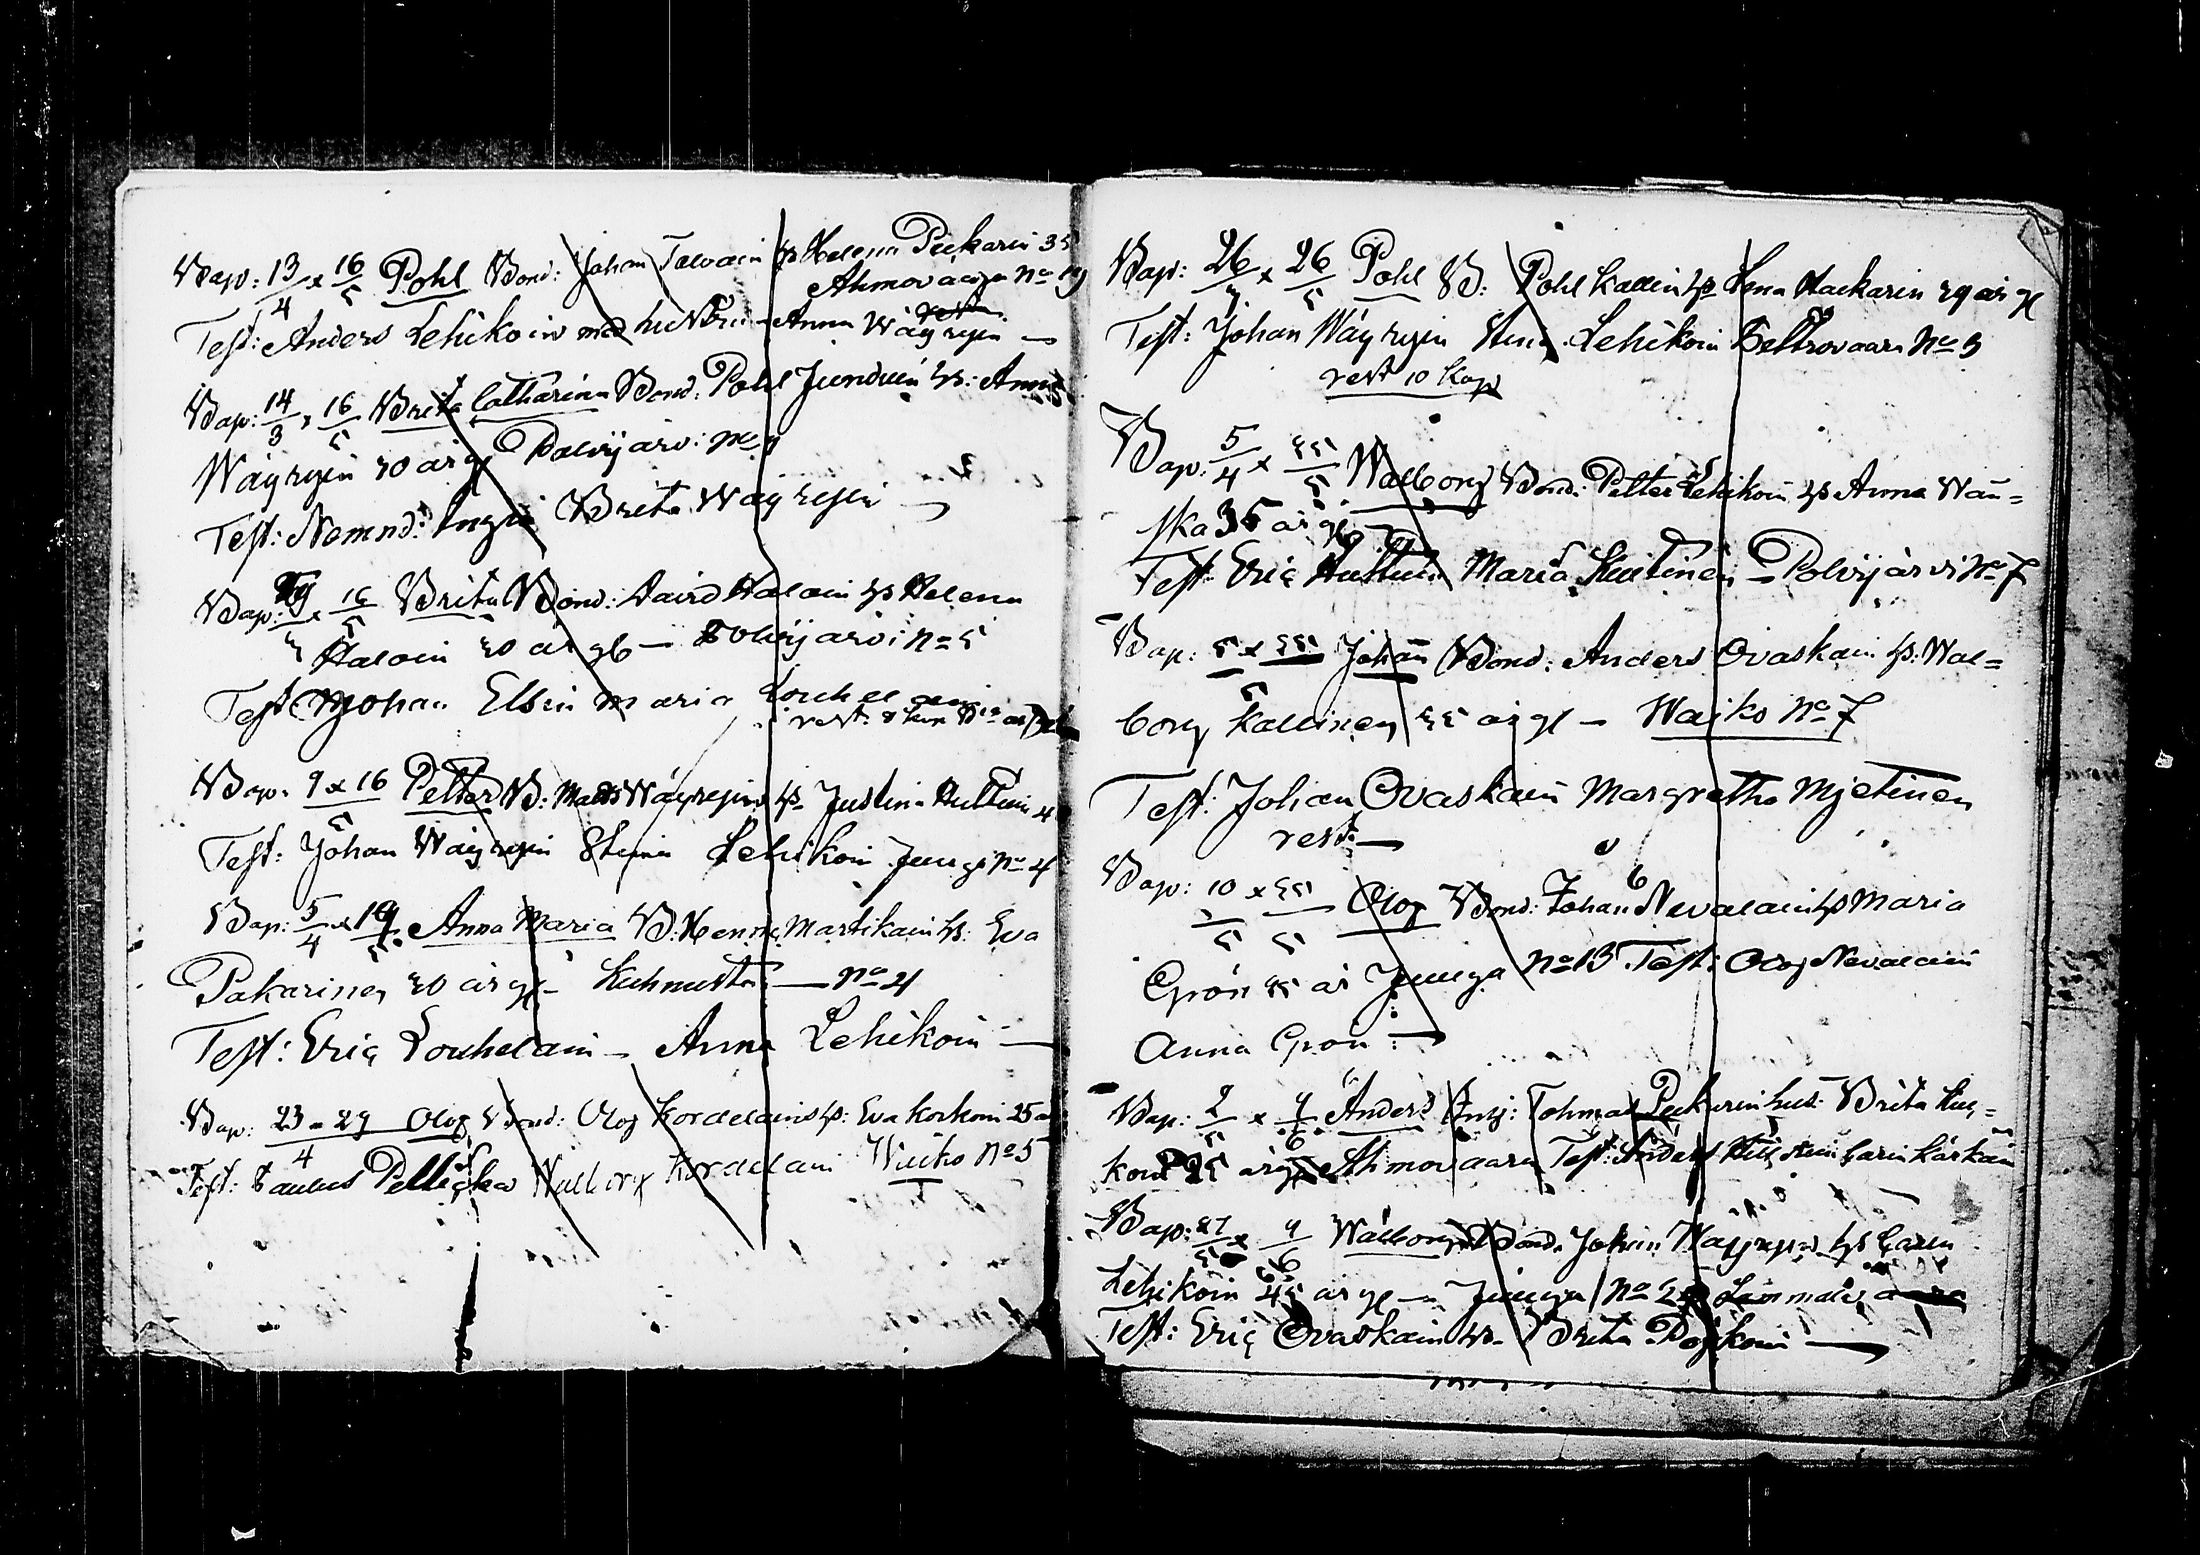 Bap: 13/4 x 16/5 Pohl Bond: Johan Talvain hs Helena Pickarin 35
Ahmovaara No 19
rest
Test: Anders Lehikoin med hustru Anna Wäyrynin —
Bap: 14/3 x 16/5 Brita Catharina Bond: Pohl Junduin hs: Anna
Wäyrynin 20 år gl Polvijärvi: No
Test: Nemnd: Brita Wäyrynin —
Bap: x 16/5 Brita Bond: David Haloin hs Helena
Haloin 20 år gl — Polvijärvi No 5
Test Johan Elsin Maria
rest: 8 kop
Bap. 9 x 16/5 Petter B: Matts Wäyrynin hs Justina Huttuin 4
Test: Johan Wäyrynin Stina Lehikoin Juuga No 4
Bap: 5/4 x 19/5 Anna Maria B: Henric Martikain hs: Eva
Pakarinen 20 år gl — Kuhnusta — No 4
Test: Eric Louhelain — Anna Lehikoin —
Bap: 23 - 29/4 Olof Bond: Olof Kordelain hs: Eva Korkoin 25 a
Test: Paulus Pellicka Walborg Kordelain Waiko No 5
Bap: 26/ x 26/5 Pohl B: Pohl Kallin hs Lena Hackarin 29 år gl
Test: Johan Wäyrynin Stina Lehikoin Pettrovaara No 3
rest 10 kop
Bap: 5/4 x 22/5 Walborg Bond: Petter Lehikoin hs Anna Wän=
ska 35 år gl
Test: Eric Huttuin Maria Kuitinen — Polvijärvi No 7
Bap: 5 x 22/5 Johan Bond: Anders Ovaskain hs: Wal=
borg Kallinen 22 år gl — Waiko No 7
Test: Johan Ovaskain Margretha Mjetinen
rest: —
Bap: 10/5 x 22/5 Olof Bond: Johan Nevalain hs Maria
Grön år Juuga No 13 Test: Olof Nevalain
Anna Grön: —
Bap: 2/5 x 9/6 Anders Inhy: Tohmas Pickarin hust: Brita Kus=
koin 25 år gl Ahmovaara Test: Anders Carin Kärkäin
Bap: x 9/6 Walborg Bond: Johan Wäyrynin hs Carin
Lehikoin 45 år gl — Juuga No 29
Test: Eric Ovaskain hs — Brita Pojkoin —